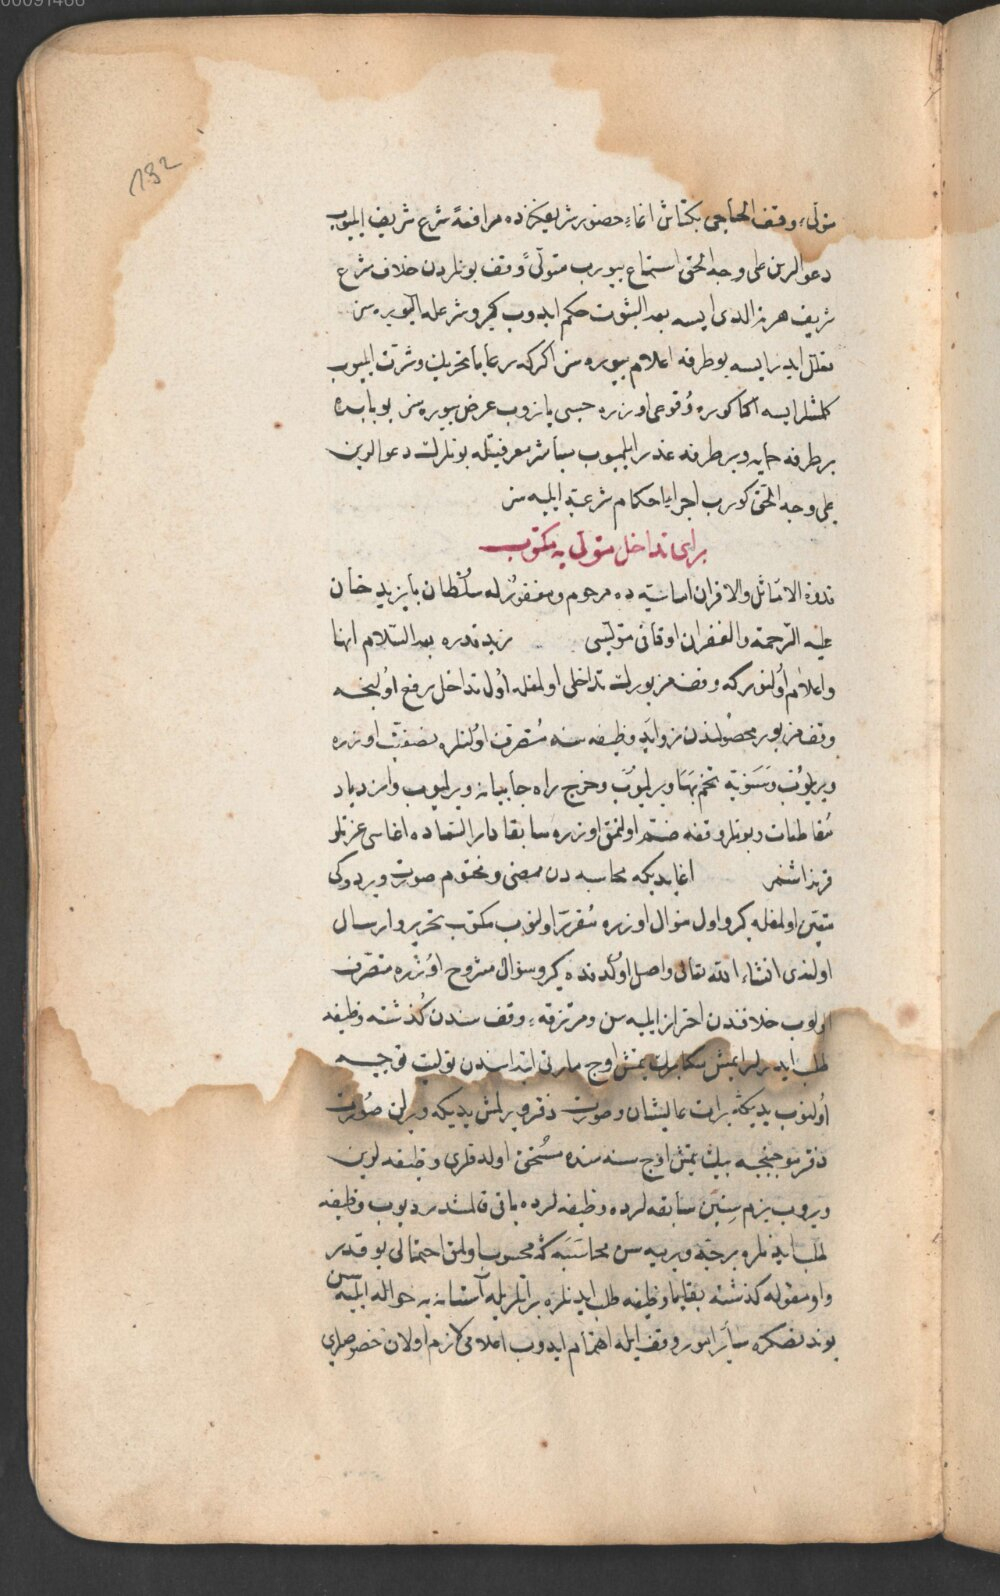 00091466
192
متولئ وقف الحاجی بکتاش اغا حضور شریعکزده مرافعهٔ شرع شریف ایلیوب
دعوالرین علی وجه الحق استماع بیورب متولئ وقف بونلردن خلاف شرع
شریف هر نه الدی ایسه بعد الثبوت حکم ایدوب کیرو شرعله الیویره سز
تعلل ایدر ایسه بو طرفه اعلام بیوره سز اکرکه رعایا تحریک وشرت ایلیوب
کلمشلر ایسه اکا کوره وقوعی اوزره جسی یازوب عرض بیوره سز بو بابده
بر طرفه حمایه و بر طرفه غدر ایلمیوب مباشر معرفتیله بونلرک دعوالرین
علی وجه الحق کورب اجرای احکام شرعیه ایلیه سز
برای تداخل متولی یه مکتوب
قدوة الاماثل والاقران اماسیه ده مرحوم ومغفور له سلطان بایزید خان
علیه الرحمة والغفران اوقافی متولیسی زید قدره بعد السلام انها
واعلام اولنور که وقف مزبورک تداخلی اولمغله اول تداخل رفع اولنجه
وقف مزبور محصولندن زواید وظیفه سنه متصرف اولنلره تنصیف اوزره
ویریلوب وتسویه تخم بها ویریلوب وخرج راه جابیانه ویریلیوب وازدیاد
مقاطعات دیونلر وقفه ضم اولنمق اوزره سابقا دار السعاده اغاسی عزتلو
اغا یدیکه محاسبه دن ممضی ومختوم صورت ویردوکی
متعین اولمغله کیرو اول منوال اوزره مقرر اولنوب مکتوب تحریر وارسال
اولندی انشاء الله تعالی واصل اولدقده کیرو منوال مشروح اوزره متصرف
اولوب خلافندن احتراز ایلیه سن ومرتزقهٔ وقف سندن کذشته وظیفه
طلب ایدرلر ایمش سکا بیک یتمش اوچ مارتی ابتداسندن تولیت توجیه
اولنوب یدیکه برات عالیشان وصورت دفتر ویرلمش یدیکه ویرلن صورت
دفتر موجبنجه بیک یتمش اوچ سنه سنده مستحق اوله قلری وظیفه لرین
ویروب بزم سنین سابقه لرده وظیفه لرده باقی قالمشدر دیوب وظیفه
طلب ایدنلره بر حبه ویرمیه سن محاسبه که محسوب اولمق احتمالی یوقدر
واو مقوله کذشته بقایا وظیفه طلب ایدنلره براتلریله آستانه یه حواله ایلیه سن
بوندنصکره سائر امور وقف ایله اهتمام ایدوب اعلامی لازم اولان خصوصلری